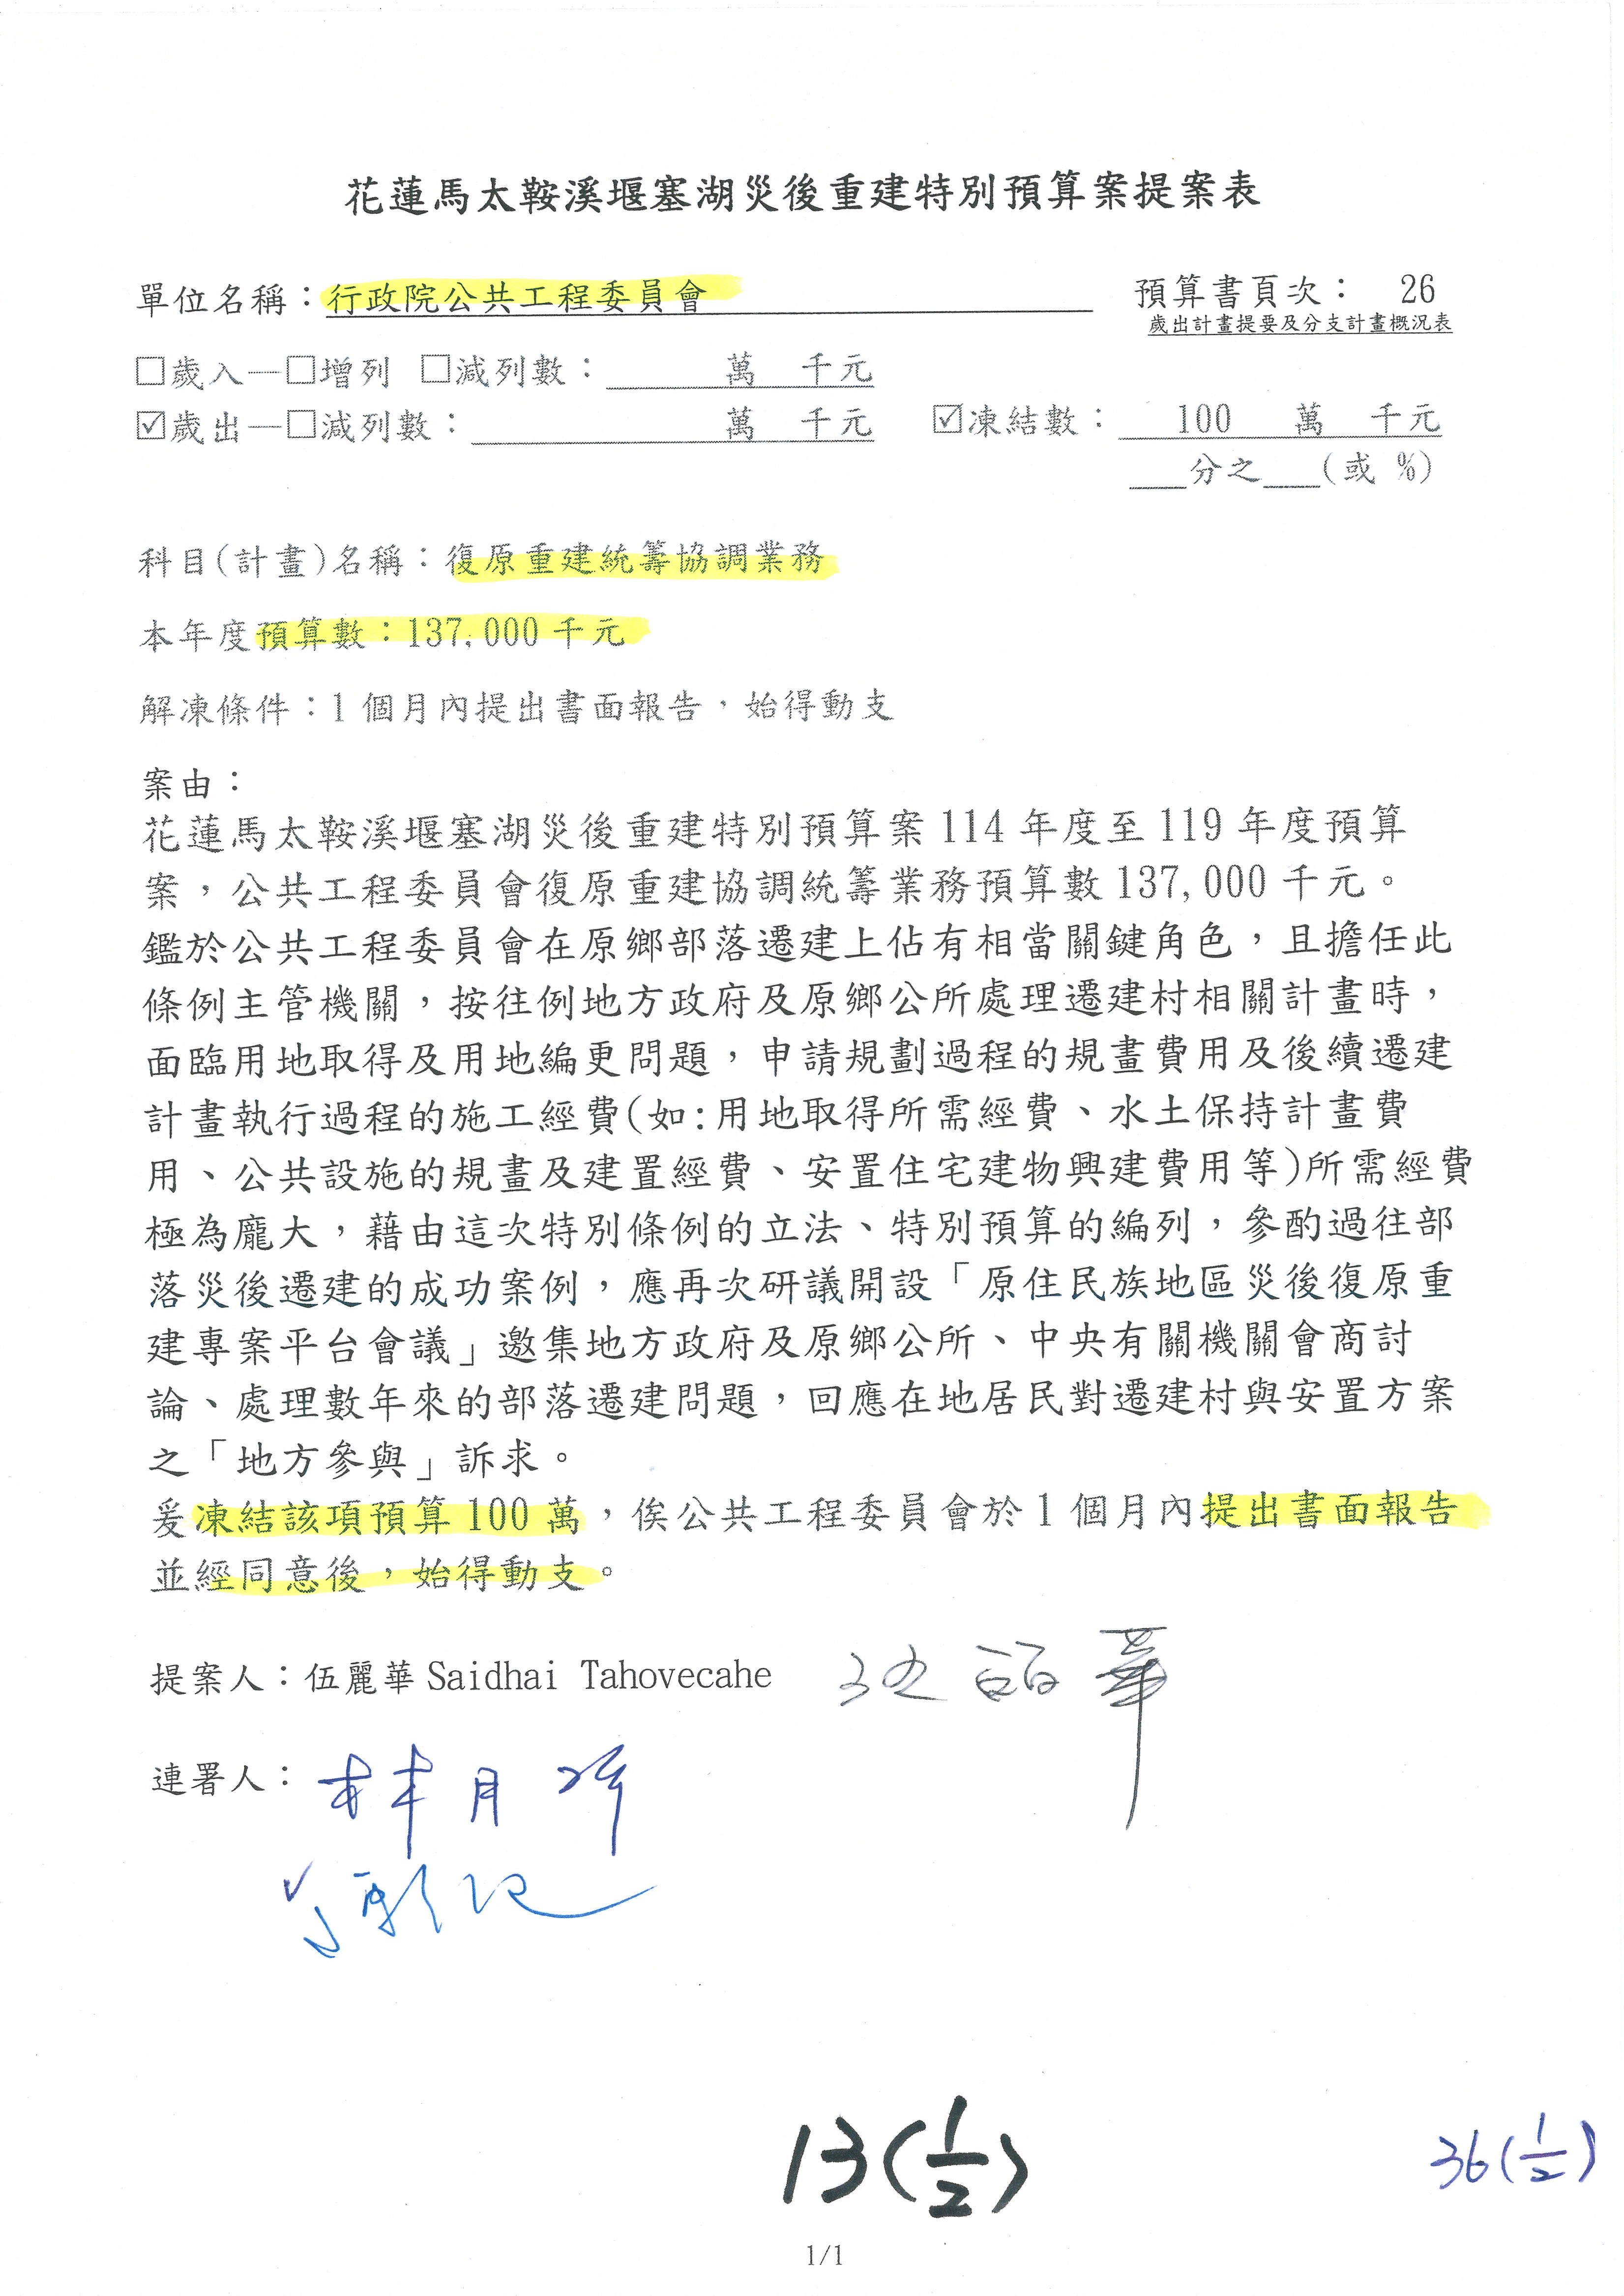 花蓮馬太鞍溪堰塞湖災後重建特別預算案提案表
單位名稱：行政院公共工程委員會
預算書頁次： 26
歲出計畫提要及分支計畫概況表
□歲入—□增列 □減列數： 萬 千元
☑歲出—□減列數： 萬 千元 ☑凍結數： 100 萬 千元
___分之___(或 %)
科目(計畫)名稱：復原重建統籌協調業務
本年度預算數：137,000 千元
解凍條件：1 個月內提出書面報告，始得動支
案由：
花蓮馬太鞍溪堰塞湖災後重建特別預算案 114 年度至 119 年度預算
案，公共工程委員會復原重建協調統籌業務預算數 137,000 千元。
鑑於公共工程委員會在原鄉部落遷建上佔有相當關鍵角色，且擔任此
條例主管機關，按往例地方政府及原鄉公所處理遷建村相關計畫時，
面臨用地取得及用地編更問題，申請規劃過程的規畫費用及後續遷建
計畫執行過程的施工經費(如:用地取得所需經費、水土保持計畫費
用、公共設施的規畫及建置經費、安置住宅建物興建費用等)所需經費
極為龐大，藉由這次特別條例的立法、特別預算的編列，參酌過往部
落災後遷建的成功案例，應再次研議開設「原住民族地區災後復原重
建專案平台會議」邀集地方政府及原鄉公所、中央有關機關會商討
論、處理數年來的部落遷建問題，回應在地居民對遷建村與安置方案
之「地方參與」訴求。
爰凍結該項預算 100 萬，俟公共工程委員會於 1 個月內提出書面報告
並經同意後，始得動支。
提案人：伍麗華 Saidhai Tahovecahe 伍麗華
連署人：林月琴
13(1/2)
36(1/2)
1/1